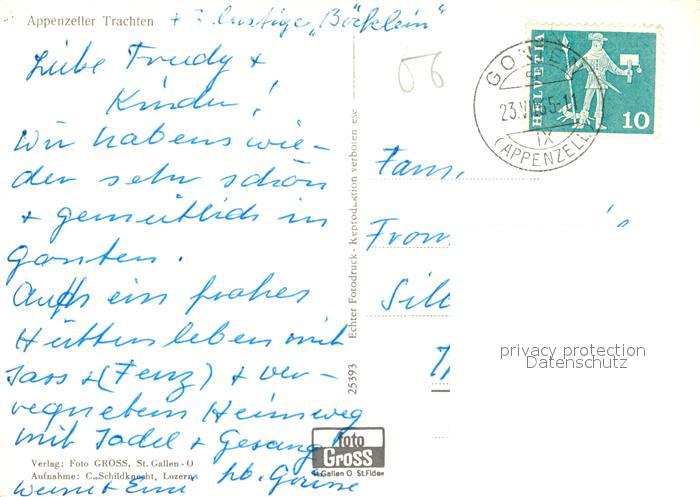 Appenzeller Trachten + 3 lustige „Böcklein"
Liebe Trudy +
Kinder!
Wir habens wie-
der sehr schön
+ gemütlich in
Gonten.
Auch ein frohes
Hüttenleben mit
Jass + (Fenz) + ver-
regnetem Heimweg
mit Jodel + Gesang
hb. Grüsse
Verlag: Foto GROSS, St. Gallen - O
Aufnahme: C. Schildknecht, Luzern
25393 Echter Fotodruck - Reproduktion verboten
foto
GROSS
St.Gallen O St.Fiden
66
HELVETIA
10
GONTEN
23.VII.65-11
IX
(APPENZELL)
Fam.
From
privacy protection
Datenschutz